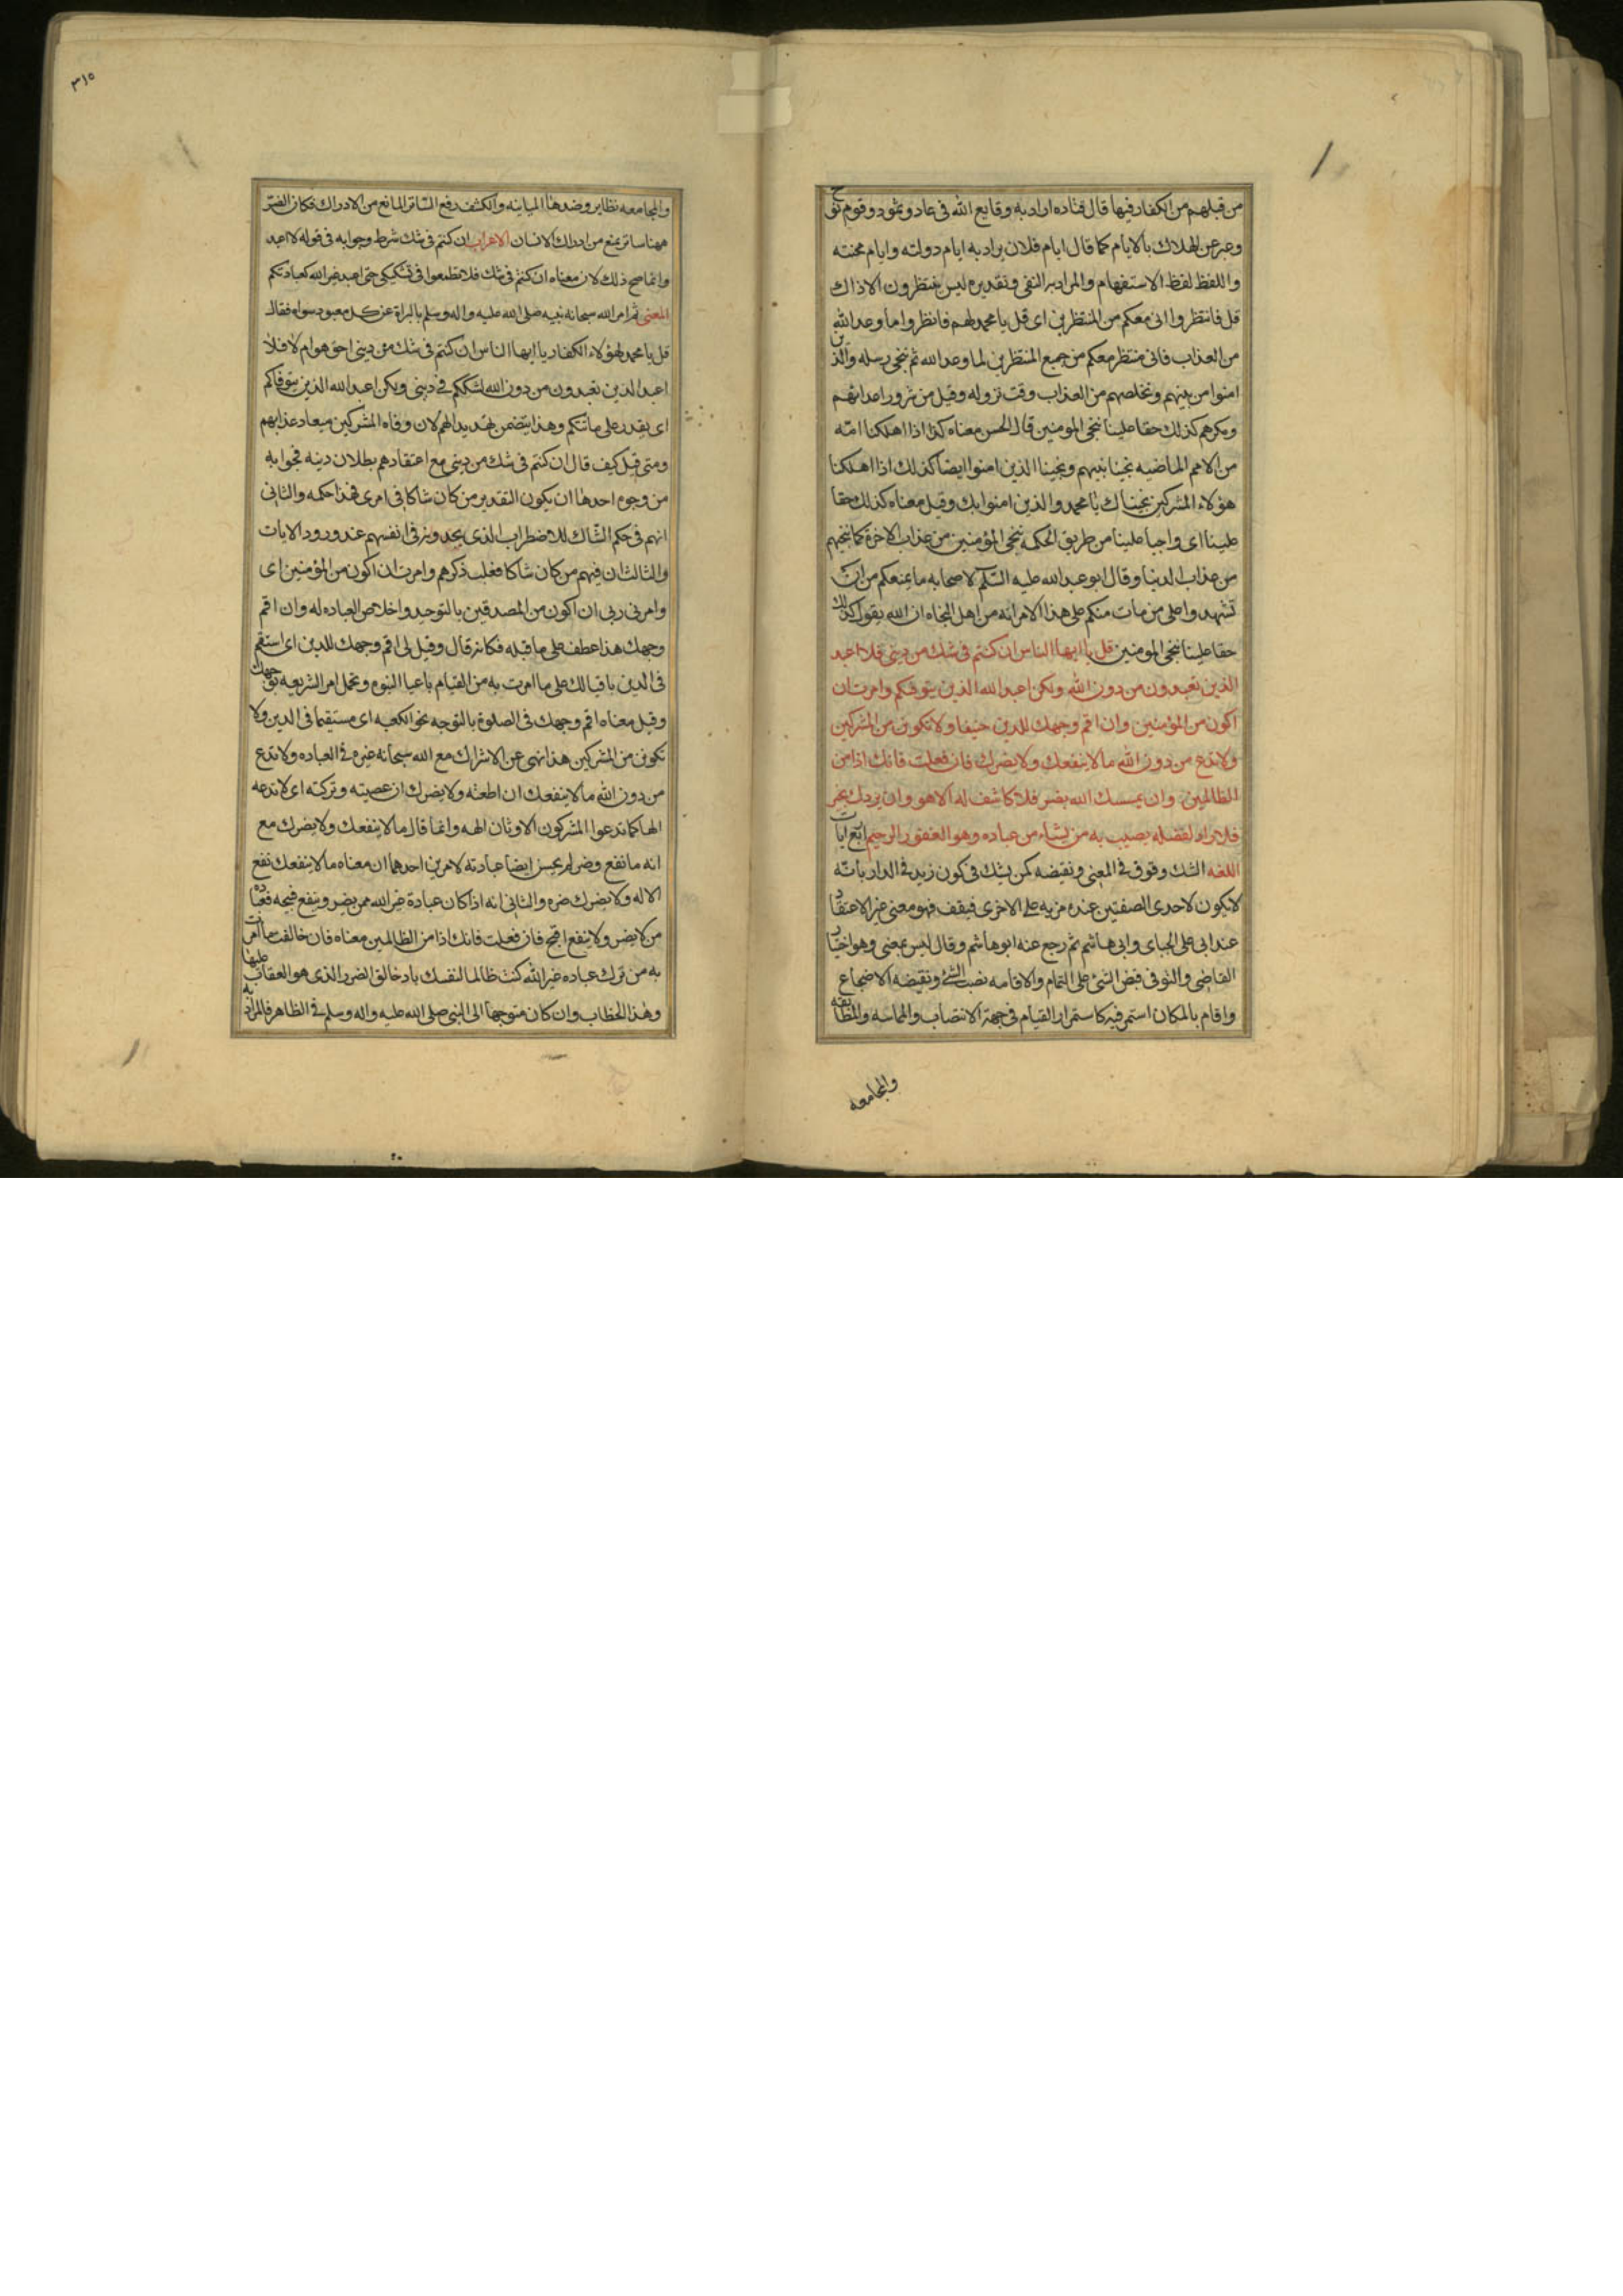 من قبلهم من الكفار فيها قال قتاده اراد به وقايع الله فى عاد وثمود وقوم نوح
وعبر عن الهلاك بالايام كما قال ايام فلان يراد به ايام دولته وايام محنته
واللفظ لفظ الاستفهام والمراد به النفى وتقديره ليس ينتظرون الا ذاك
قل فانتظروا انى معكم من المنتظرين اى قل يا محمد لهم فانظروا ما وعد الله
من العذاب فانى منتظر معكم من جميع المنتظرين لما وعد الله ثم ننجى رسله والذين
امنوا من بينهم ونخلصهم من العذاب وقت نزوله وقيل من شرور اعدائهم
ومكرهم كذلك حقا علينا ننجى المومنين قال الحسن معناه كنا اذا اهلكنا امّة
من الامم الماضيه نجينا نبيهم ونجينا الذين امنوا ايضا كذلك اذا اهلكنا
هؤلاء المشركين نجيناك يا محمد والذين امنوا بك وقيل معناه كذلك حقا
علينا اى واجبا علينا من طريق الحكمه ننجى المؤمنين من عذاب الاخرة كما ننجيهم
من عذاب الدنيا وقال ابو عبد الله عليه السّلم لاصحابه ما يمنعكم من ان
تشهدوا على من مات منكم على هذا الامر انه من اهل الجنه ان الله يقول كذلك
حقا علينا ننجى المومنين قل يا ايها الناس ان كنتم فى شك من دينى فلا اعبد
الذين تعبدون من دون الله ولكن اعبد الله الذين يتوفكم وامرت ان
اكون من المؤمنين وان اقم وجهك للدين حنيفا ولا تكونن من المشركين
ولا تدع من دون الله ما لا ينفعك ولا يضرك فان فعلت فانك اذا من
الظالمين وان يمسسك الله بضر فلا كاشف له الا هو وان يردك بخير
فلا راد لفضله يصيب به من يشاء من عباده وهو الغفور الرحيم اربع ايات
اللغه الشك وقوف فى المعنى ونقيضه كمن يشك فى كون زيد فى الدار بانّه
لا يكون لاحدى الصفتين عنده مزيه على الاخرى فيقف فهو معنى غير الاعتقاد
عند ابى على الجباى وابى هاشم ثم رجع عنه ابو هاشم وقال ليس بمعنى وهو اختيار
القاضى والتوفى قبض الشئ على التمام والاقامه نصب الشئ ونقيضه الاضجاع
واقام بالمكان استمر فيه كاستمرار القيام فى جهة الانتصاب والمماسه والمطابقه
والمجامعه
٣١٥
والمجامعه نظاير وضدها المباينه والكشف رفع السّاتر المانع من الادراك فكان الضرّ
ههنا ساتر يمنع من ادراك الانسان الاعراب ان كنتم فى شك شرط وجوابه فى قوله لا اعبد
وانما صح ذلك لان معناه ان كنتم فى شك فلا تطمعوا فى تشكيكى حتى اعبد غير الله كعبادتكم
المعنى ثم امر الله سبحانه نبيه صلى الله عليه واله وسلم بالبراة عن كل معبود سواه فقال
قل يا محمد لهؤلاء الكفار يا ايها الناس ان كنتم فى شك من دينى احق هو ام لا فلا
اعبد الذين تعبدون من دون الله لشككم فى دينى ولكن اعبد الله الذين يتوفاكم
اى يقدر على ماتتكم وهذا يتضمن تهديدا لهم لان وفاه المشركين ميعاد عذابهم
ومتى قيل كيف قال ان كنتم فى شك من دينى مع اعتقادهم بطلان دينه فجوابه
من وجوه احدها ان يكون التقدير من كان شاكا فى امرى فهذا حكمه والثانى
انهم فى حكم الشّاك للاضطراب الذى يجدونه فى انفسهم عند ورود الايات
والثالث ان فيهم من كان شاكا فغلب ذكرهم وامرت ان اكون من المؤمنين اى
وامرنى ربى ان اكون من المصدقين بالتوحيد واخلاص العباده له وان اقم
وجهك هذا عطف على ما قبله فكانه قال وقيل لى اقم وجهك للدين اى استقم
فى الدين باقبالك على ما امرت به من القيام باعبا النبوه وتحمل امر الشريعه بوجهك
وقيل معناه اقم وجهك فى الصلوة بالتوجه نحو الكعبه اى مستقيما فى الدين ولا
تكونن من المشركين هذا نهى عن الاشراك مع الله سبحانه غيره فى العباده ولا تدع
من دون الله ما لا ينفعك ان اطعته ولا يضرك ان عصيته وتركته اى لا تدعه
الها كما تدعوا المشركون الاوثان الهه وانما قال ما لا ينفعك ولا يضرك مع
انه ما نفع وضر لم يحسن ايضا عبادته لامرين احدهما ان معناه ما لا ينفعك نفع
الاله ولا يضرك ضره والثانى انه اذا كان عبادة غير الله ممن يضر وينفع قبيحه فعبادة
من لا يضر ولا ينفع اقبح فان فعلت فانك اذا من الظالمين معناه فان خالفت ما امرت
به من ترك عباده غير الله كنت ظالما لنفسك بادخالك الضرر الذى هو العقاب عليها
وهذا الخطاب وان كان متوجها الى النبى صلى الله عليه واله وسلم فى الظاهر فالمراد به